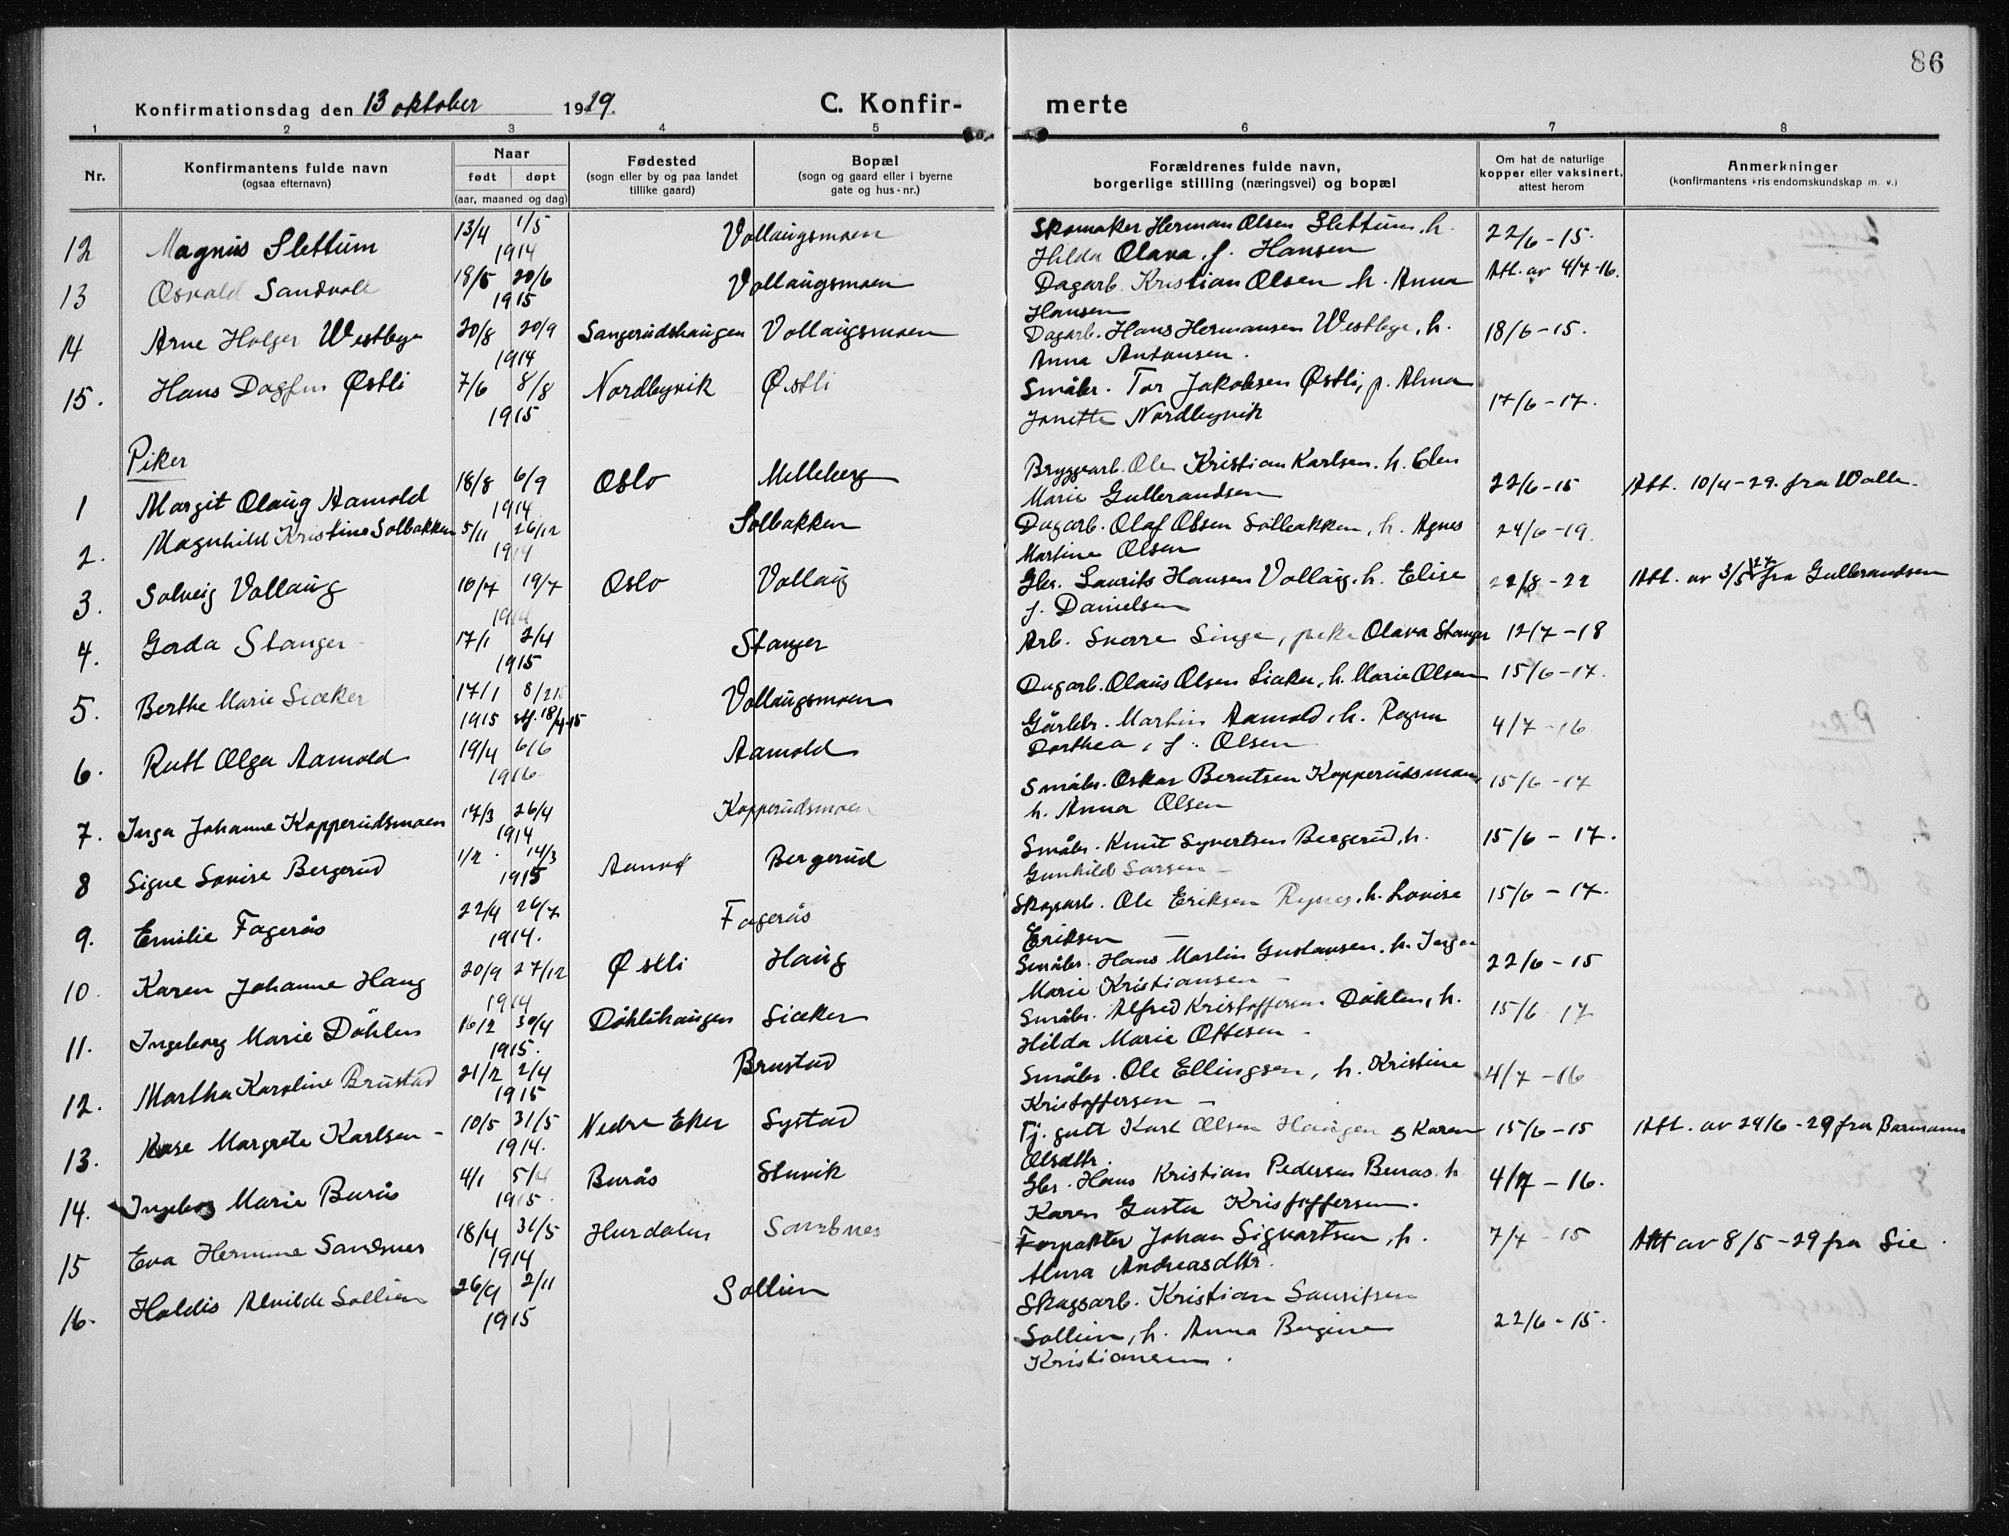 86
Konfirmationsdag den 13 oktober 1929.
C. Konfir- merte
1 2 3 4 5 6 7 8
Nr.
Konfirmantens fulde navn
(ogsaa efternavn)
Naar
født døpt
(aar, maaned og dag)
Fødested
(sogn eller by og paa landet
tillike gaard)
Bopæl
(sogn og gaard eller i byerne
gate og hus-nr.)
Forældrenes fulde navn,
borgerlige stilling (næringsvei) og bopæl
Om hat de naturlige
kopper eller vaksinert,
attest herom
Anmerkninger
(konfirmantens kristendomskundskap m. v.)
12 Magnus Slettum 13/4 1/5 1914 Vollaugsmoen Skomaker Herman Olsen Slettum, h. 22/6-15.
Hilda Olava, f. Hansen
13 Osvald Sandvold 19/5 20/6 1915 Vollaugsmoen Dagarb. Kristian Olsen h. Anna Att. av 4/7-16.
Hansen
14 Arne Holger Westbye 20/8 20/9 1914 Sangerudshaugen Vollaugsmoen Dagarb. Hans Hermansen Westbye, h. 18/6-15.
Anna Antonsen.
15. Hans Dagfin Østli 7/6 8/8 1915 Nordbyvik Østli Småbr. Tor Jakobsen Østli, p. Alma
Jonette Nordbyvik 17/6-17.
Piker
1 Margit Olaug Aamold 18/8 6/9 1914 Oslo Melleberg Bryggearb. Ole Kristian Karlsen. h. Elen
Marie Gullerandsen 22/6-15 Att. 10/4-29. fra Walle.
2. Magnhild Kristine Solbakken 5/11 26/12 1914 Solbakken Dagarb. Olaf Olsen Solbakken, h. Agnes
Martine Olsen 24/6-19.
3. Solveig Vollaug 10/7 19/7 1914 Oslo Vollaug Gbr. Laurits Hansen Vollaug. h. Elise
f. Danielsen 22/8-22 Att. av 3/5 fra Gullerandsen
4. Gerda Stanger 17/1 2/4 1915 Stanger Arb. Snorre Singe, pike Olava Stanger 12/7-18
5. Berthe Marie Sicker 17/1 8/2 1915 stf. 18/4-15 Vollaugsmoen Dagarb. Olaus Olsen Sicker, h. Marie Olsen 15/6-17.
6. Ruth Olga Aamold 19/4 6/6 1916 Aamold Gårdbr. Martin Aamold, h. Ragna
Dorthea, f. Olsen 4/7-16
7. Inga Johanne Kopperudsmoen 17/3 26/4 1914 Kopperudsmoen Småbr. Oskar Berntsen Kopperudsmoen,
h. Anna Olsen 15/6-17
8 Signe Lovise Bergerud 1/2 14/3 1915 Bergerud Småbr. Knut Syvertsen Bergerud, h.
Gunhild Larsen 15/6-17.
9. Emilie Fagerås 22/4 26/7 1914. Fagerås Skogsarb. Ole Eriksen, h. Lovise
Eriksen 15/6-17.
10. Karen Johanne Haug 20/9 27/12 1914 Østli Haug Småbr. Hans Martin Gustavsen, h. Inga
Marie Kristiansen 22/6-15
11. Ingeborg Marie Döhlen 16/2 30/4 1915. Döhlihaugen Sicker Småbr. Alfred Kristoffersen Döhlen, h.
Hilda Marie Ottesen 15/6 17
12. Martha Karoline Brustad 21/2 2/4 1915 Brustad Småbr. Ole Ellingsen, h. Kristine
Kristoffersen 4/7-16
13. Aase Margrete Karlsen 10/5 31/5 1914. Nedre Eker Systad Tj. gutt Karl Olsen Haugen og Karen
Olsdtr. 15/6-15 Att. av 24/6-29 fra Barmann
14. Ingeborg Marie Burås 4/1 5/4 1915. Burås Stuvik Gbr. Hans Kristian Pedersen Burås. h
Karen Gusta Kristoffersen. 4/7-16.
15 Eva Hermine Sandsnes 18/4 31/5 1914 Hurdalen Sandsnes Forpakter Johan Sigvartsen, h.
Alma Andreasdtr. 7/7-15 Att av 8/5-29 fra Lie.
16. Haldis Alvilde Sollien 26/9 2/11 1915 Sollien Skogsarb. Kristian Lauritsen
Sollien, h. Anna Bergine
Kristiansen. 22/6-15.